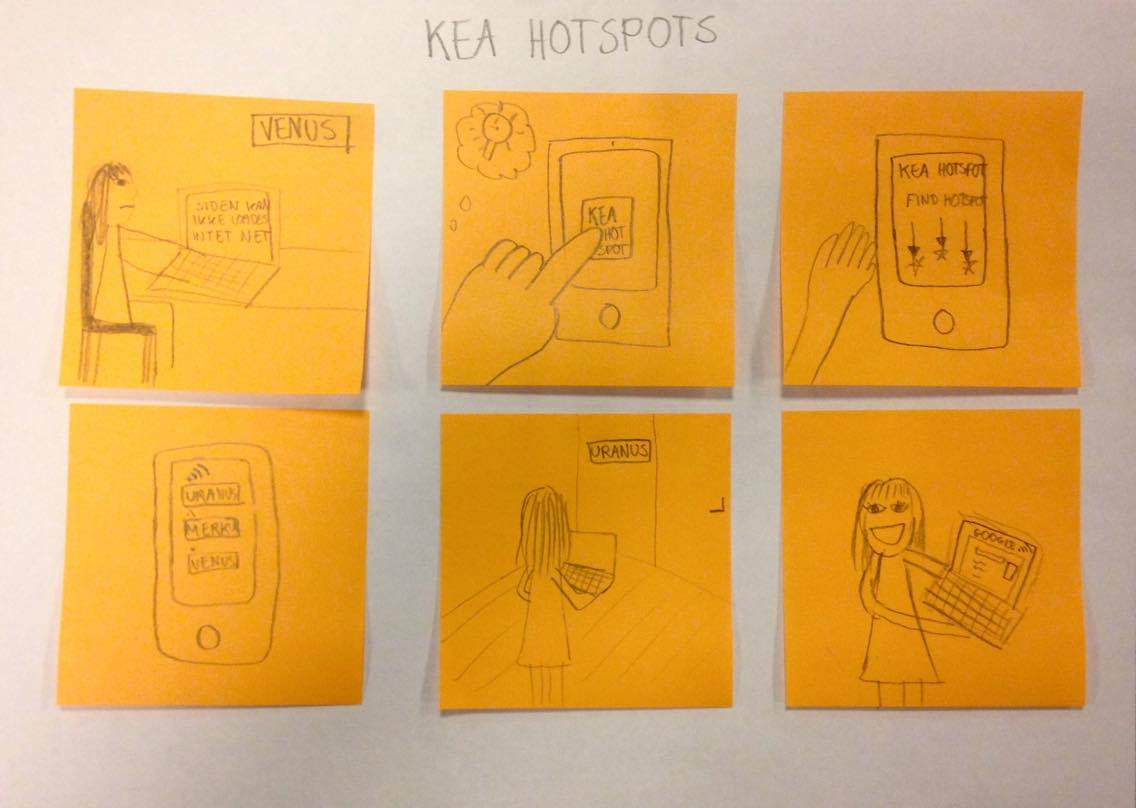 KEA HOTSPOTS
VENUS
SIDEN KAN
IKKE LOADES
INTET NET
KEA
HOT
SPOT
KEA HOTSPOT
FIND HOTSPOT
URANUS
MERK
VENUS
URANUS
GOOGLE